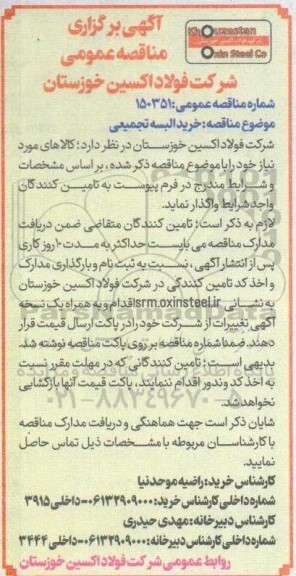 Khouzestan
Oxin Steel Co
آگهی برگزاری
مناقصه عمومی
شرکت فولاد اکسین خوزستان
شماره مناقصه عمومی: ۱۵۰۳۵۱
موضوع مناقصه: خرید البسه تجمیعی
شرکت فولاد اکسین خوزستان در نظر دارد؛ کالاهای مورد
نیاز خود را با موضوع مناقصه ذکر شده، بر اساس مشخصات
و شرایط مندرج در فرم پیوست به تامین کنندگان
واجد شرایط واگذار نماید.
لازم به ذکر است؛ تامین کنندگان متقاضی ضمن دریافت
مدارک مناقصه می بایست حداکثر به مدت ۱۰ روز کاری
پس از انتشار آگهی، نسبت به ثبت نام و بارگذاری مدارک
و اخذ کد تامین کنندگی در شرکت فولاد اکسین خوزستان
به نشانی srm.oxinsteel.ir اقدام و به همراه یک نسخه
آگهی تغییرات از شرکت خود را در پاکت ارسال قیمت قرار
دهند. ضمنا شماره مناقصه بر روی پاکت مناقصه نوشته شد.
بدیهی است؛ تامین کنندگانی که در مهلت مقرر نسبت
به اخذ کد وندور اقدام ننمایند، پاکت قیمت آنها بازگشایی
نخواهد شد.
شایان ذکر است جهت هماهنگی و دریافت مدارک مناقصه
با کارشناسان مربوطه با مشخصات ذیل تماس حاصل
نمایید.
کارشناس خرید: راضیه موحدنیا
شماره داخلی کارشناس خرید: ۰۶۱۳۲۹۰۹۰۰۰-داخلی ۳۹۱۵
کارشناس دبیرخانه: مهدی حیدری
شماره داخلی کارشناس دبیرخانه: ۰۶۱۳۲۹۰۹۰۰۰-داخلی ۳۴۴۴
روابط عمومی شرکت فولاد اکسین خوزستان
۰۲۱-۸۸۳۴۹۶۷۰